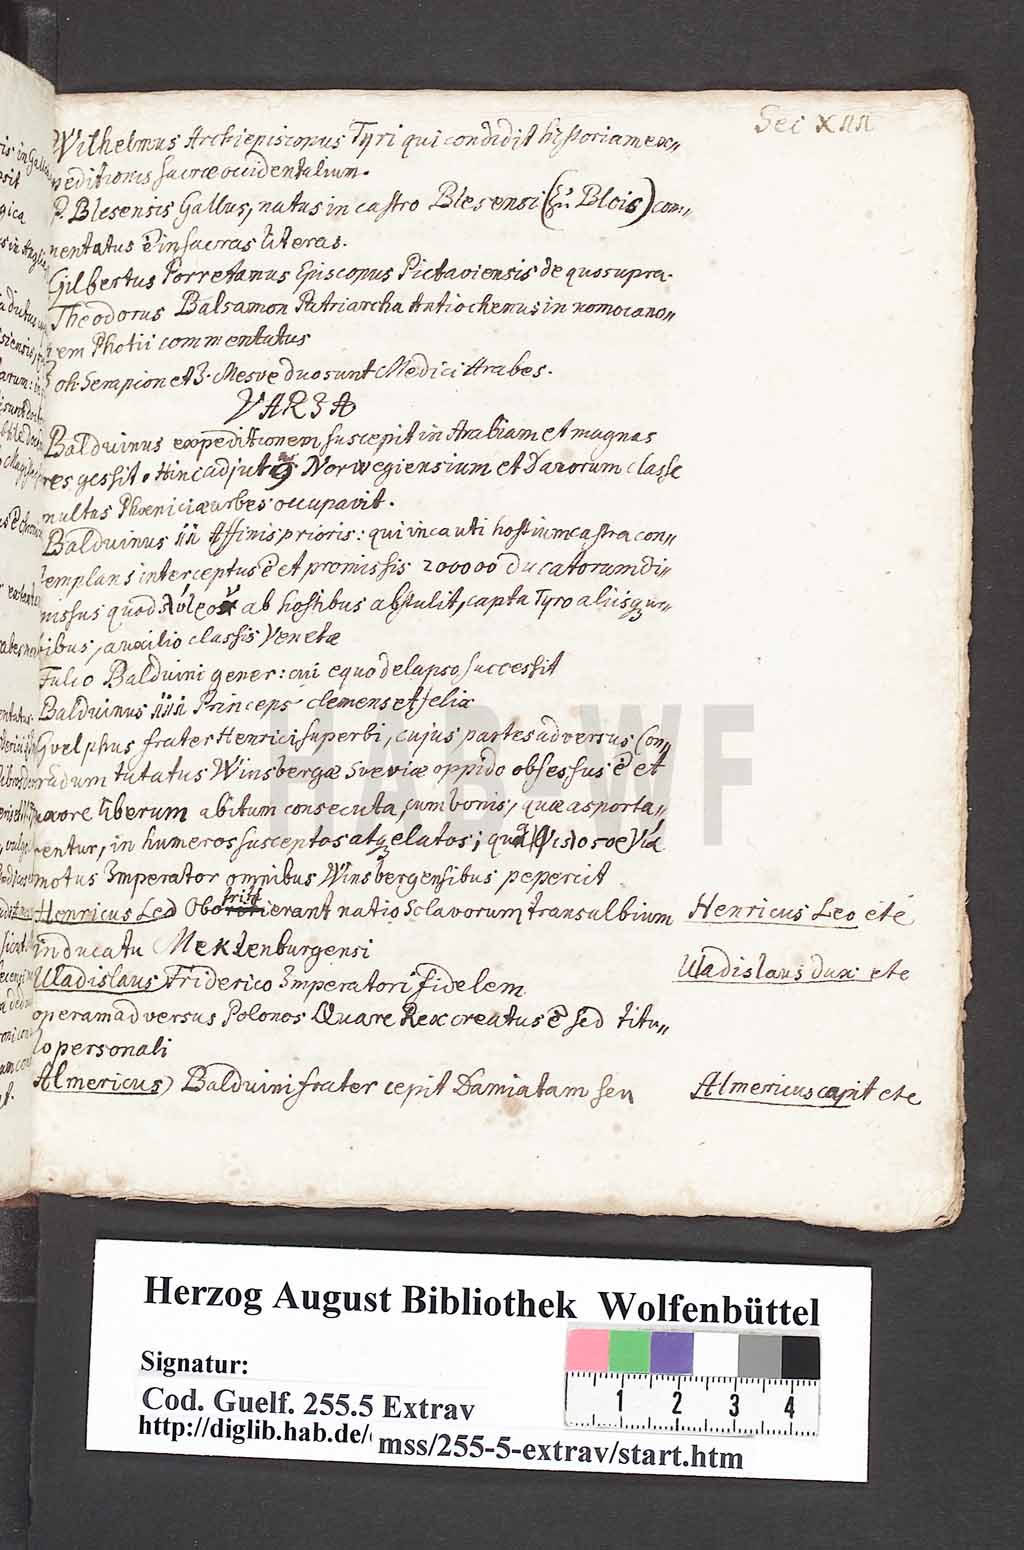 Sec XIII
Wilhelmus Archiepiscopus Tyri qui condidit historiam ex„
peditionis sacræ occidentalium.
P. Blesensis Gallus, natus in castro Blesensi (zu Blois) com„
mentatus ē in sacras literas.
Gilbertus Porretanus Episcopus Pictaviensis de quo supra.
Theodorus Balsamon Patriarcha Antiochenus in nomocano„
nem Photii commentatus
Joh. Serapion et J. Mesve duo sunt Medici Arabes.
VARIA
Balduinus expeditionem suscepit in Arabiam et magnas
res gessit. Hinc adjutus Norwegiensium et Danorum classe
multas Phœniciæ urbes occupavit.
Balduinus II Affinis prioris: qui incauti hostium castra con„
templans interceptus ē et promissis 200000 ducatorum di„
missus quod ab hostibus abstulit, capta Tyro aliisq ur„
bibus, auxilio classis Venetæ
Fulco Balduini gener: cui equo delapso successit
Balduinus III Princeps clemens et felix
Gvelphus frater Henrici superbi, cujus partes adversus Con„
radum tutatus Winsbergæ Sveviæ oppido obsessus ē et
uxore liberum abitum consecuta, cum bonis, quæ asporta„
rentur, in humeros susceptos atq elatos;
motus Imperator omnibus Winsbergensibus pepercit
Henricus Leo Obotritierant natio Sclavorum transalbium
Henricus Leo etc
in ducatu Meklenburgensi
Uladislaus Friderico Imperatori fidelem
Uladislaus dux etc
operam adversus Polonos Quare Rex creatus ē sed titu„
lo personali
Almericus Balduini frater cepit Damiatam seu
Almericus cepit etc
HAB-WF
Herzog August Bibliothek Wolfenbüttel
Signatur:
Cod. Guelf. 255.5 Extrav
http://diglib.hab.de/
mss/255-5-extrav/start.htm
1 2 3 4